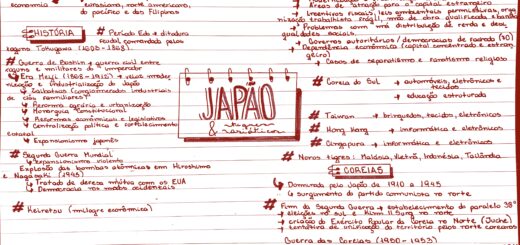 economia
eurasiana, norte americana,
do pacífico e das Filipinas
HISTÓRIA
# Período Edo → ditadura
feudal comandada pelos
xoguns Tokugawa
# Guerra de Boshin → guerra civil entre
xoguns e militares do imperador
↳ Era Meiji (1868-1912) →
nização e industrialização do Japão
↳ Zaibatsus (conglomerados industriais
de clãs familiares)
↳ Reforma agrária e urbanização
↳ Monarquia Constitucional
↳ Reformas econômicas e legislativas
↳ Centralização política e fortalecimento
estatal
↳ Expansionismo japonês
# Segunda Guerra Mundial
↳ expansionismo violento
Explosão das bombas atômicas em Hiroshima
e Nagasaki (1945)
↳ Tratado de defesa mútua com os EUA
↳ Democracia nos moldes ocidentais
# Keiretsu (milagre econômico)
JAPÃO
& tigres
asiáticos
→ Áreas de atração para o capital estrangeiro
↳ Incentivos fiscais, leis ambientais permissivas, orga
nização trabalhista frágil, mão de obra qualificada e barata
↳ Problemas com má distribuição de renda e desi
gualdades sociais.
↳ Governos autoritários/democracias de fachada (30)
↳ Dependência econômica (capital concentrado e estran
geiro)
↳ Casos de separatismo e fanatismo religioso
# Coreia do Sul → automóveis, eletrônicos e
tecidos
↳ educação estruturada
# Taiwan → brinquedos, tecidos, eletrônicos
# Hong Kong → informática e eletrônicos
# Cingapura → informática e eletrônicos
# Novos tigres: Malásia, Vietnã, Indonésia, Tailândia
COREIAS
↳ Dominada pelo Japão de 1910 a 1945
↳ surgimento do partido comunista no norte
# Fim da Segunda Guerra → estabelecimento do paralelo 38°
↳ eleições no sul e Kim Il Sung no norte
↳ criação do Exército Popular da Coreia no Norte (Juche)
↳ tentativa de unificação do território pelos norte coreanos
Guerra das Coreias (1950-1953)